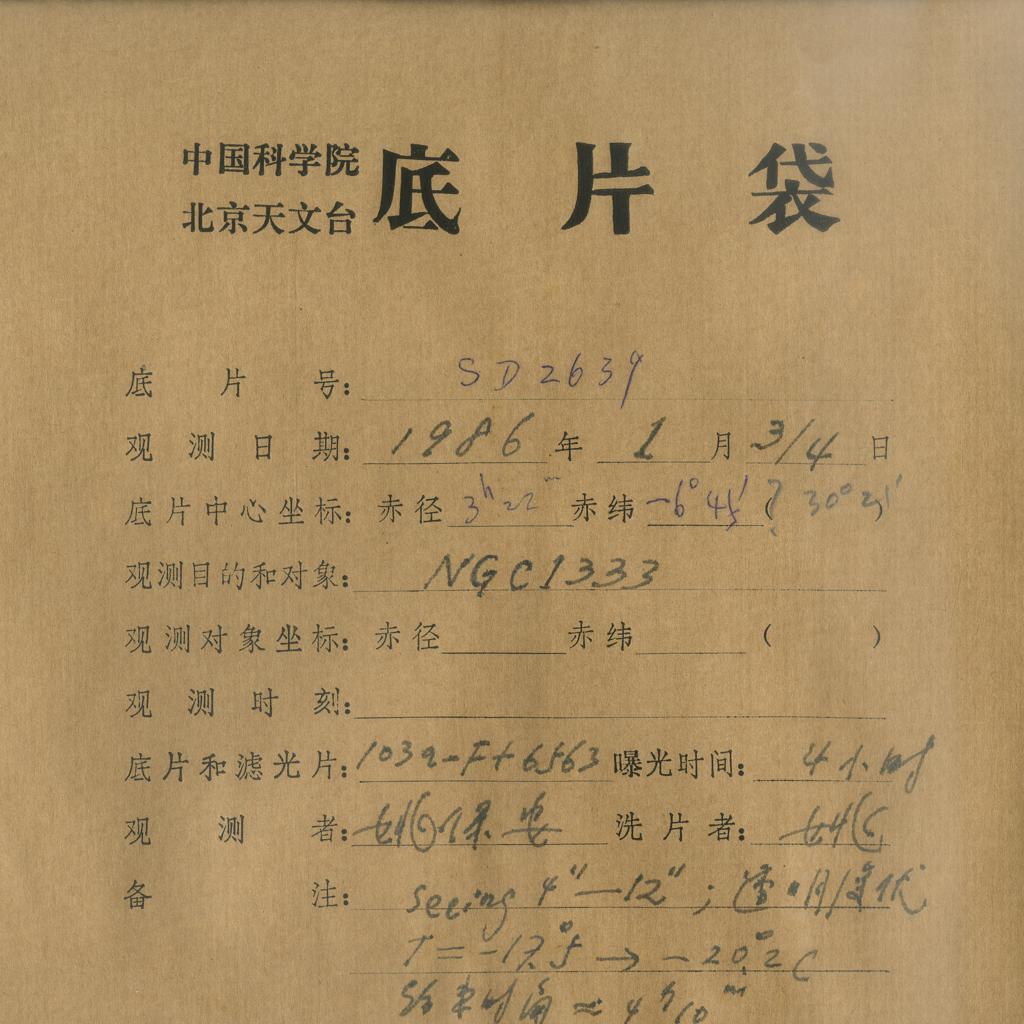 中国科学院
北京天文台
底片袋
底片号: SD2639
观测日期: 1986年1月3/4日
底片中心坐标: 赤径 3h22m 赤纬 -6°45' (? 30°21')
观测目的和对象: NGC1333
观测对象坐标: 赤径 赤纬 ( )
观测时刻:
底片和滤光片: 103a-F+6563 曝光时间: 4小时
观测者: 保安 洗片者:
备注: seeing 4"—12"; 透明度
T=-17°.5 → -20°.2C
结束时角 ≈ 4h10m